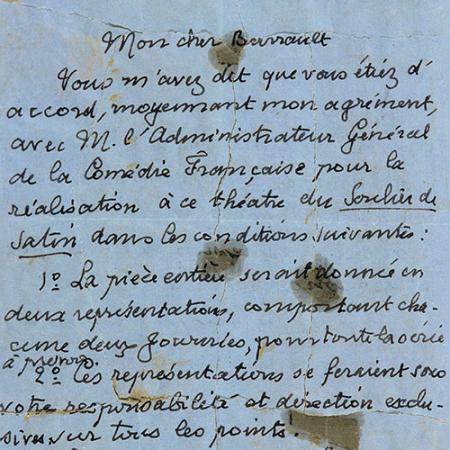 Mon cher Barrault
Vous m'avez dit que vous étiez d'
accord, moyennant mon agrément,
avec M. l'Administrateur Général
de la Comédie Française pour la
réalisation à ce théatre du Soulier de
Satin dans les conditions suivantes :
1º La pièce entière serait donnée en
deux représentations, comportant cha-
cune deux Journées, pour toute la série
2º Les représentations se feraient sous
votre responsabilité et direction exclu-
sives sur tous les points.